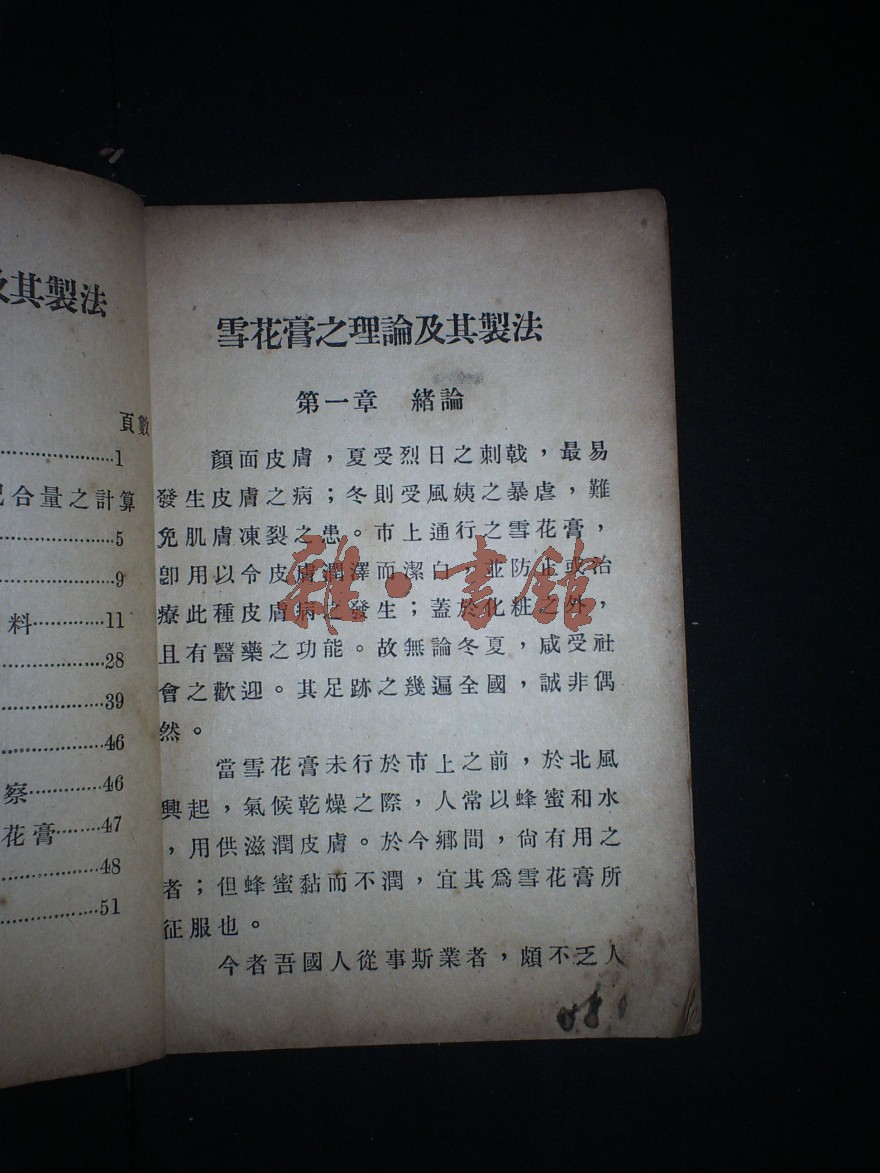 及其製法
頁數
1
配合量之計算
5
9
料…………11
28
39
46
察………46
花膏………47
48
51
雪花膏之理論及其製法
第一章　緒論
顏面皮膚，夏受烈日之刺戟，最易
發生皮膚之病；冬則受風姨之暴虐，難
免肌膚凍裂之患。市上通行之雪花膏，
卽用以令皮膚潤澤而潔白，並防止或治
療此種皮膚病之發生；蓋於化粧之外，
且有醫藥之功能。故無論冬夏，咸受社
會之歡迎。其足跡之幾遍全國，誠非偶
然。
當雪花膏未行於市上之前，於北風
興起，氣候乾燥之際，人常以蜂蜜和水
，用供滋潤皮膚。於今鄉間，尙有用之
者；但蜂蜜黏而不潤，宜其爲雪花膏所
征服也。
今者吾國人從事斯業者，頗不乏人
雅·書館